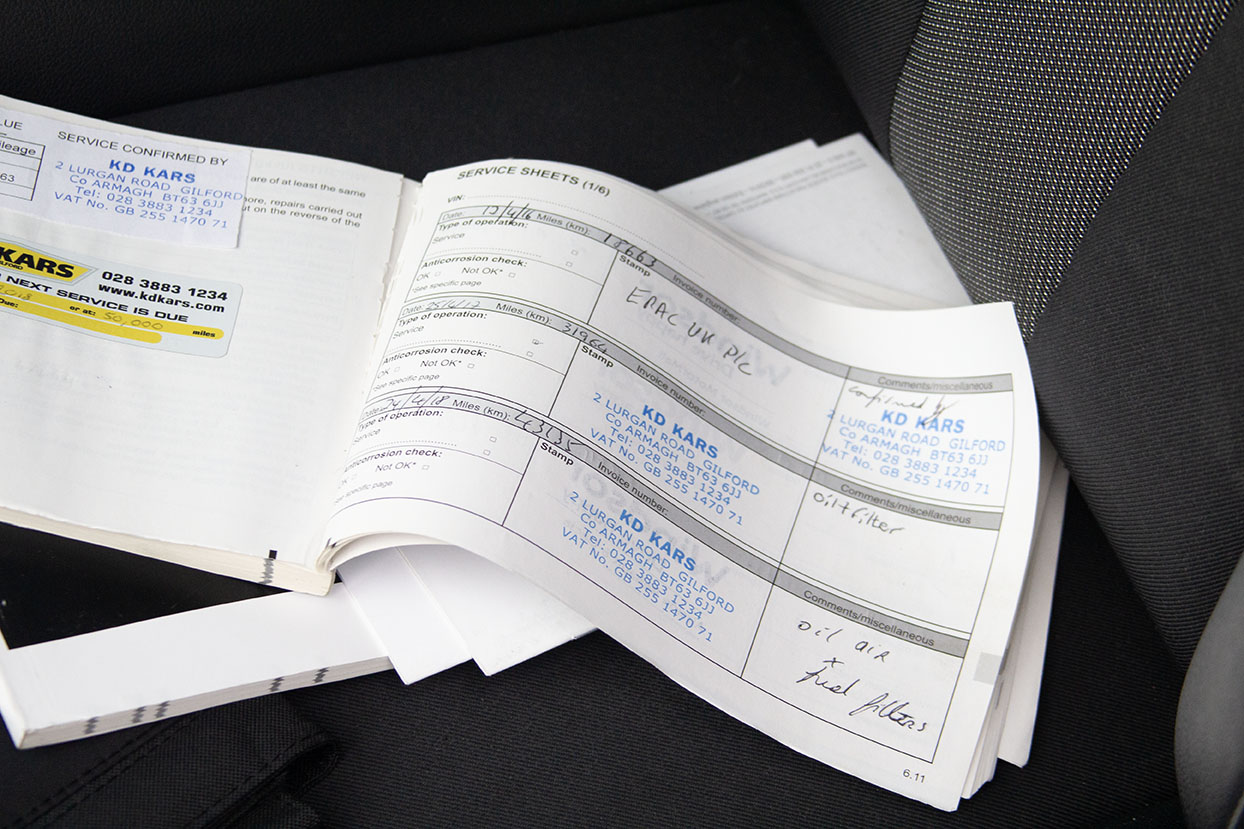 LUE
Mileage
63
SERVICE CONFIRMED BY
KD KARS
2 LURGAN ROAD GILFORD
Co ARMAGH BT63 6JJ
Tel: 028 3883 1234
VAT No. GB 255 1470 71
are of at least the same
ore, repairs carried out
ut on the reverse of the
KARS
028 3883 1234
www.kdkars.com
NEXT SERVICE IS DUE
Due:
or at: 50,000 miles
SERVICE SHEETS (1/6)
VIN:
Date: 12/4/16 Miles (km): 18663
Type of operation:
Service
Anticorrosion check:
OK Not OK*
*See specific page
Stamp
Invoice number:
ERAC UK PLC
Comments/miscellaneous
confirmed by
KD KARS
2 LURGAN ROAD GILFORD
Co ARMAGH BT63 6JJ
Tel: 028 3883 1234
VAT No. GB 255 1470 71
Date: 25/4/17 Miles (km): 31964
Type of operation:
Service
Anticorrosion check:
OK Not OK*
*See specific page
Stamp
Invoice number:
KD KARS
2 LURGAN ROAD GILFORD
Co ARMAGH BT63 6JJ
Tel: 028 3883 1234
VAT No. GB 255 1470 71
Comments/miscellaneous
oil+filter
Date: 24/4/18 Miles (km): 43135
Type of operation:
Service
Anticorrosion check:
OK Not OK*
*See specific page
Stamp
Invoice number:
KD KARS
2 LURGAN ROAD GILFORD
Co ARMAGH BT63 6JJ
Tel: 028 3883 1234
VAT No. GB 255 1470 71
Comments/miscellaneous
oil air
+
fuel filters
6.11